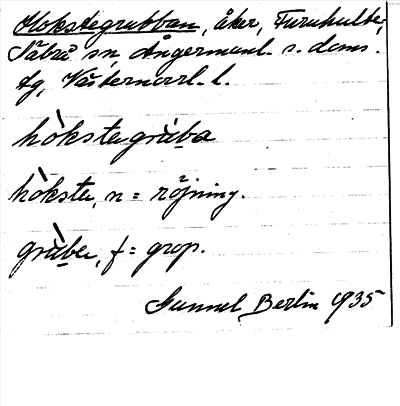 Hokstegrubban, åker, Furuhult,
Säbrå sn, Ångermanl. s. doms.
tg, Västernorrl. l.
hòkstegrùba
hòkste, n = röjning.
grùbe, f = grop.
Gunnel Berlin 1935